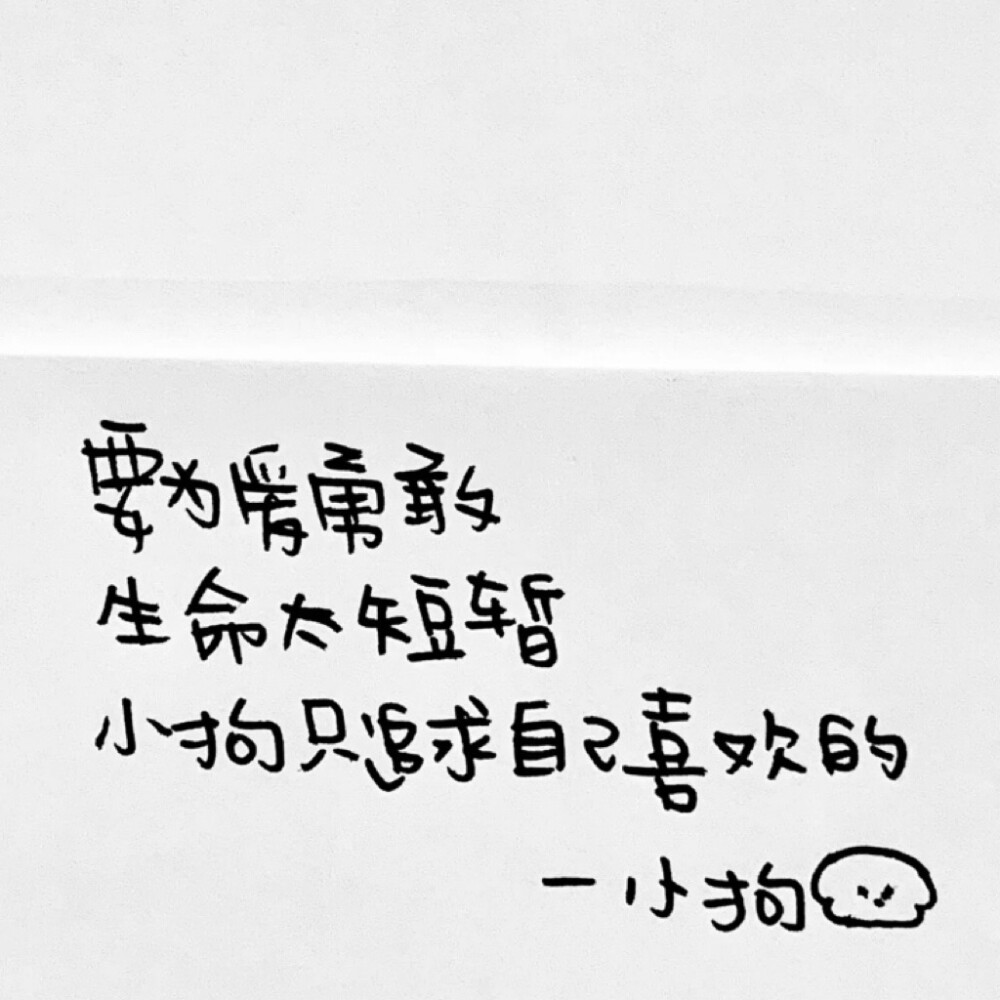 要为爱勇敢
生命太短暂
小狗只追求自己喜欢的
一小狗